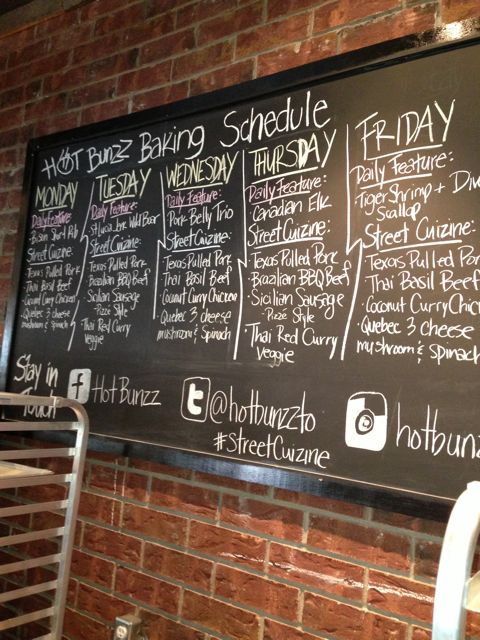 HOT Bunzz Baking Schedule
MONDAY
Daily Feature:
Bison Short Rib
Street Cuizine:
Texas Pulled Pork
Thai Basil Beef
Coconut Curry Chicken
Quebec 3 cheese
mushroom & spinach
TUESDAY
Daily Feature:
St Lucia Jrk Wild Boar
Street Cuizine:
Texas Pulled Pork
Brazilian BBQ Beef
Sicilian Sausage
- Pizzé Style
Thai Red Curry
veggie
WEDNESDAY
Daily Feature:
Pork Belly Trio
Street Cuizine:
Texas Pulled Pork
Thai Basil Beef
Coconut Curry Chicken
Quebec 3 cheese
mushroom & spinach
THURSDAY
Daily Feature:
Canadian Elk
Street Cuizine:
Texas Pulled Pork
Brazilian BBQ Beef
Sicilian Sausage
- Pizzé Style
Thai Red Curry
veggie
FRIDAY
Daily Feature:
Tiger Shrimp + Dive
Scallop
Street Cuizine:
Texas Pulled Por
Thai Basil Beef
Coconut Curry Chic
Quebec 3 cheese
mushroom & spinach
Stay in
Touch
f Hot Bunzz
t @hotbunzzto
#StreetCuizine
hotbunz